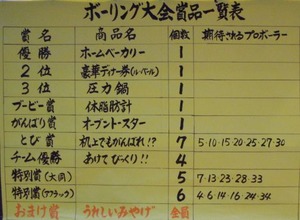 ボーリング大会賞品一覧表
賞名 商品名 個数 期待されるプロボーラー
優勝 ホームベーカリー 1
2位 豪華ディナー券(ル・ベール) 1
3位 圧力鍋 1
ブービー賞 体脂肪計 1
がんばり賞 オーブントースター 1
とび賞 机上でもがんばれ!? 7 5・10・15・20・25・27・30
チーム優勝 あけてびっくり!! 4
特別賞(大同) 5 7・13・23・28・33
特別賞(アフラック) 6 4・6・14・16・24・34
おまけ賞 うれしいみやげ 全員